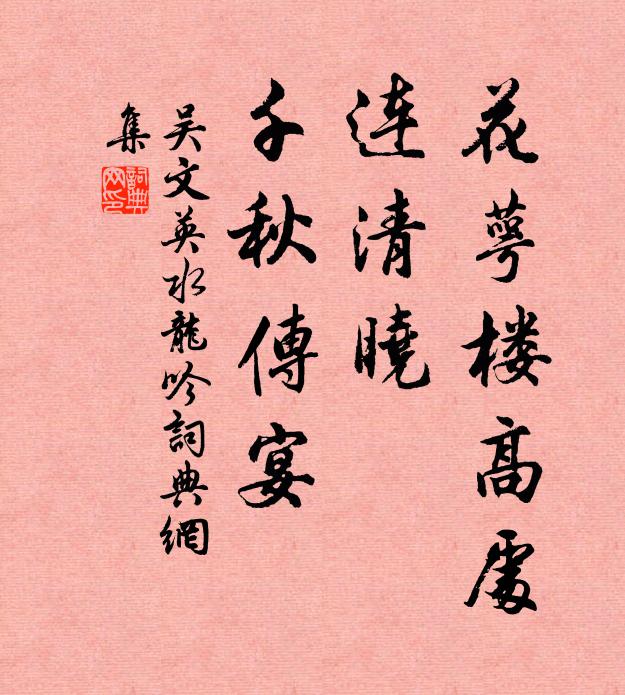 花萼楼高處
连清曉
千秋傳宴
吴文英水龍吟詞典網
集
詞典网印